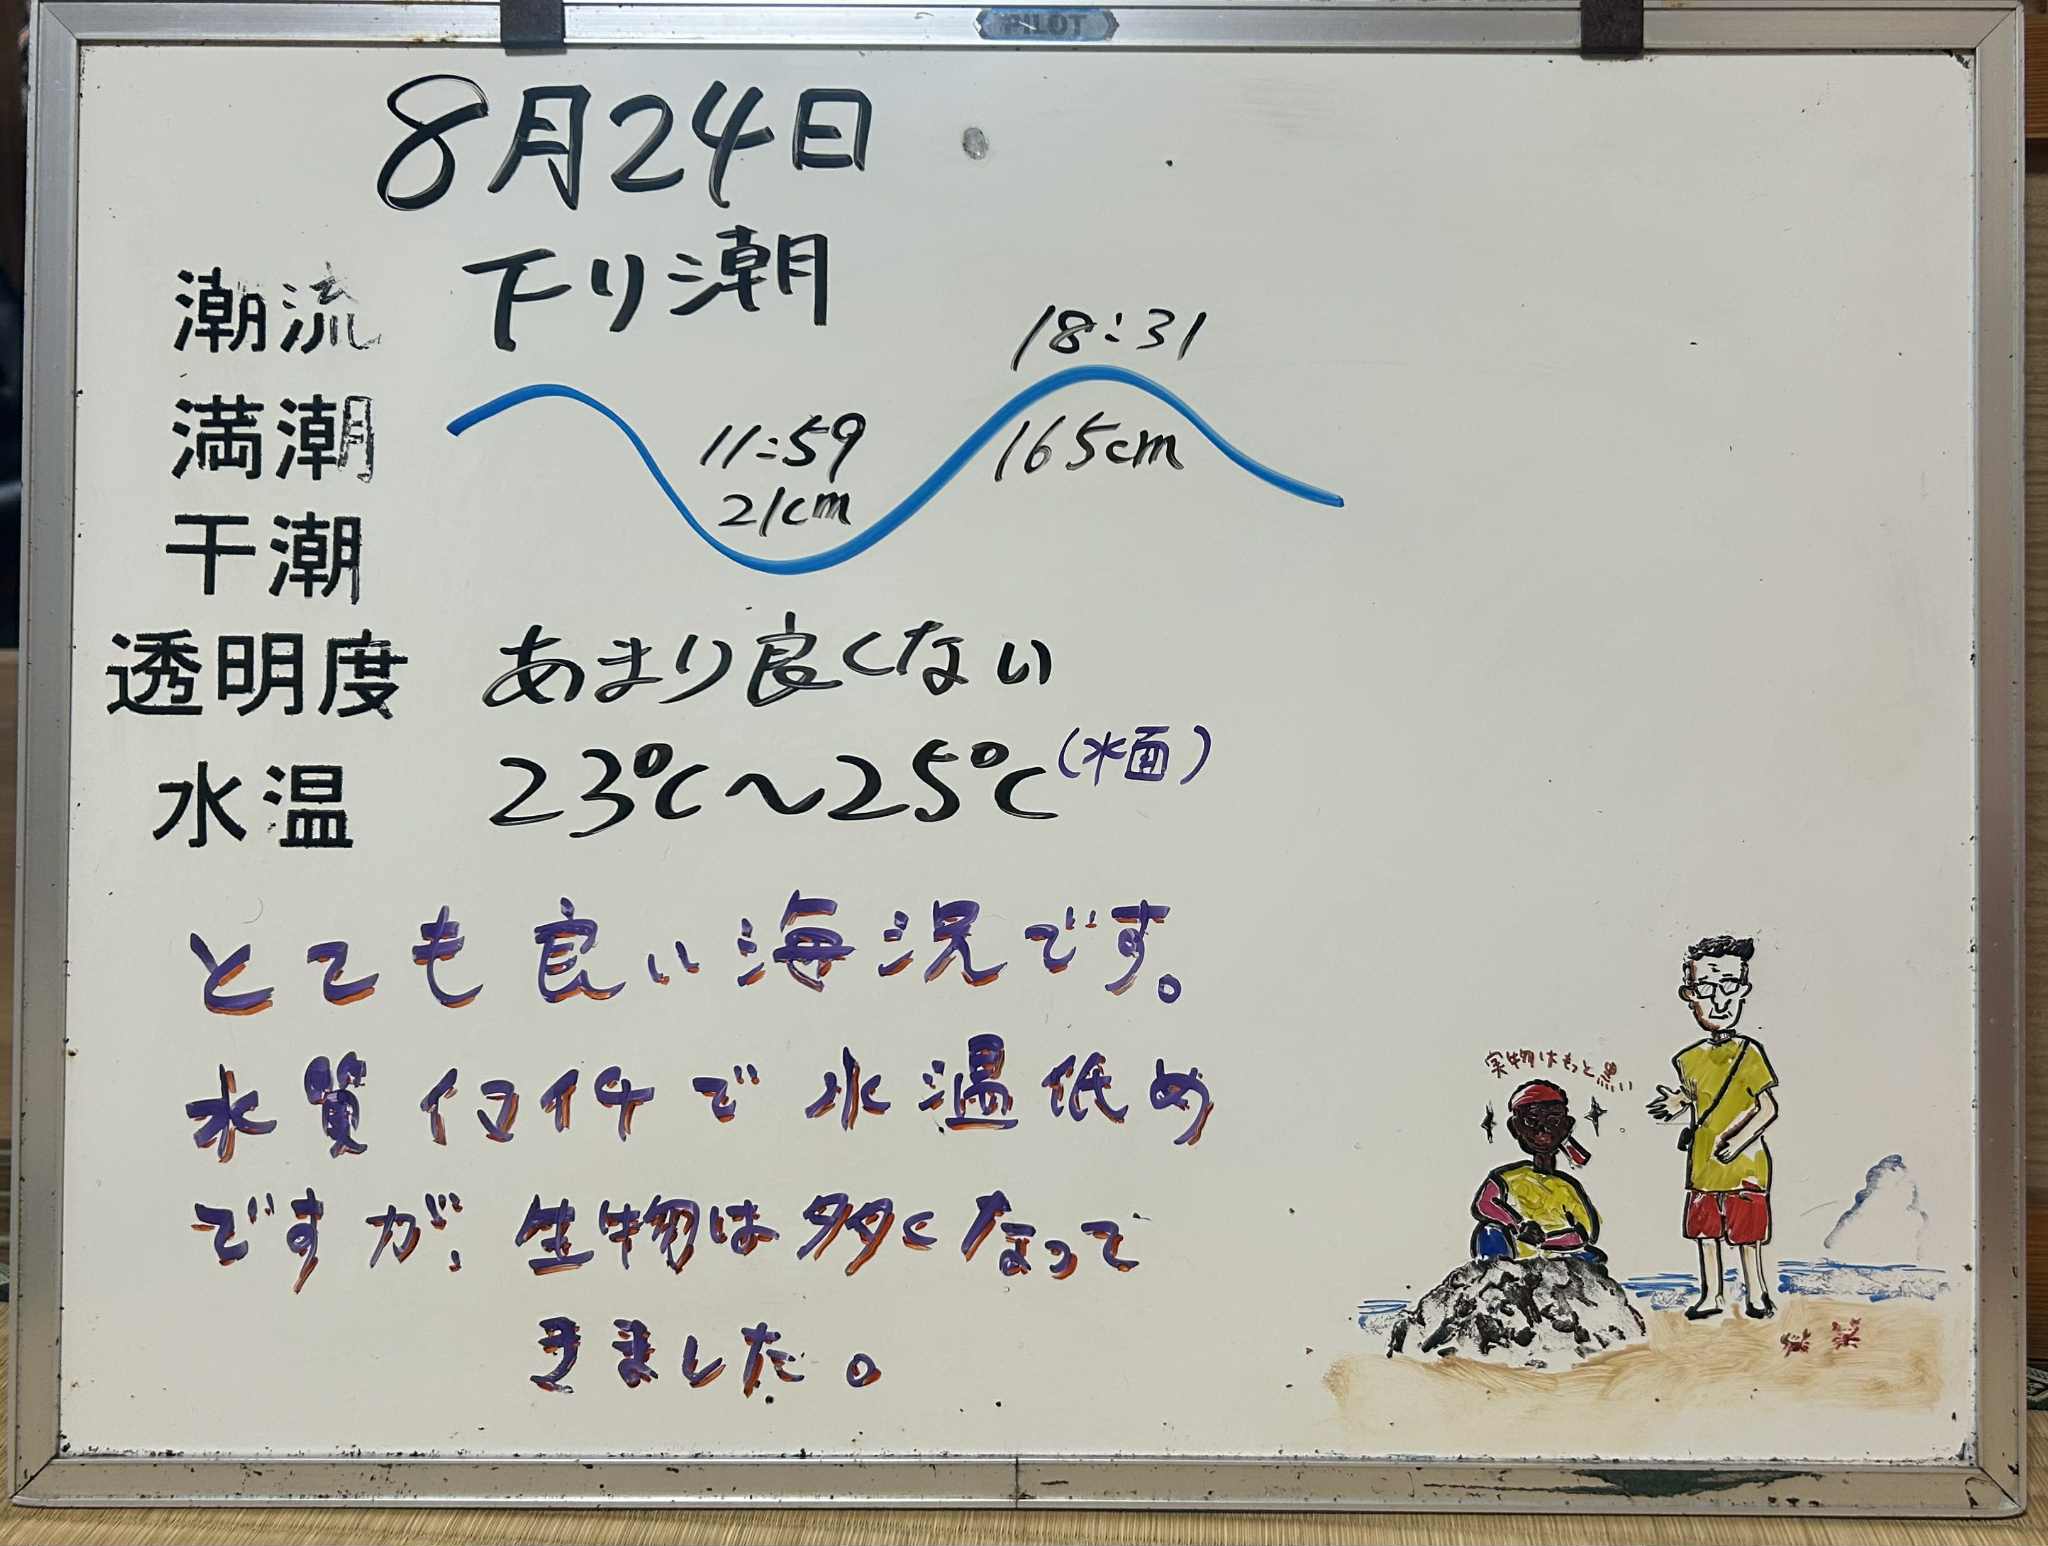 PILOT
8月24日
潮流 下り潮
満潮 18:31
165cm
干潮 11:59
21cm
透明度 あまり良くない
水温 23℃～25℃(水面)
とても良い海況です。
水質イマイチで水温低め
ですが、生物は多くなって
きました。
実物はもっと黒い